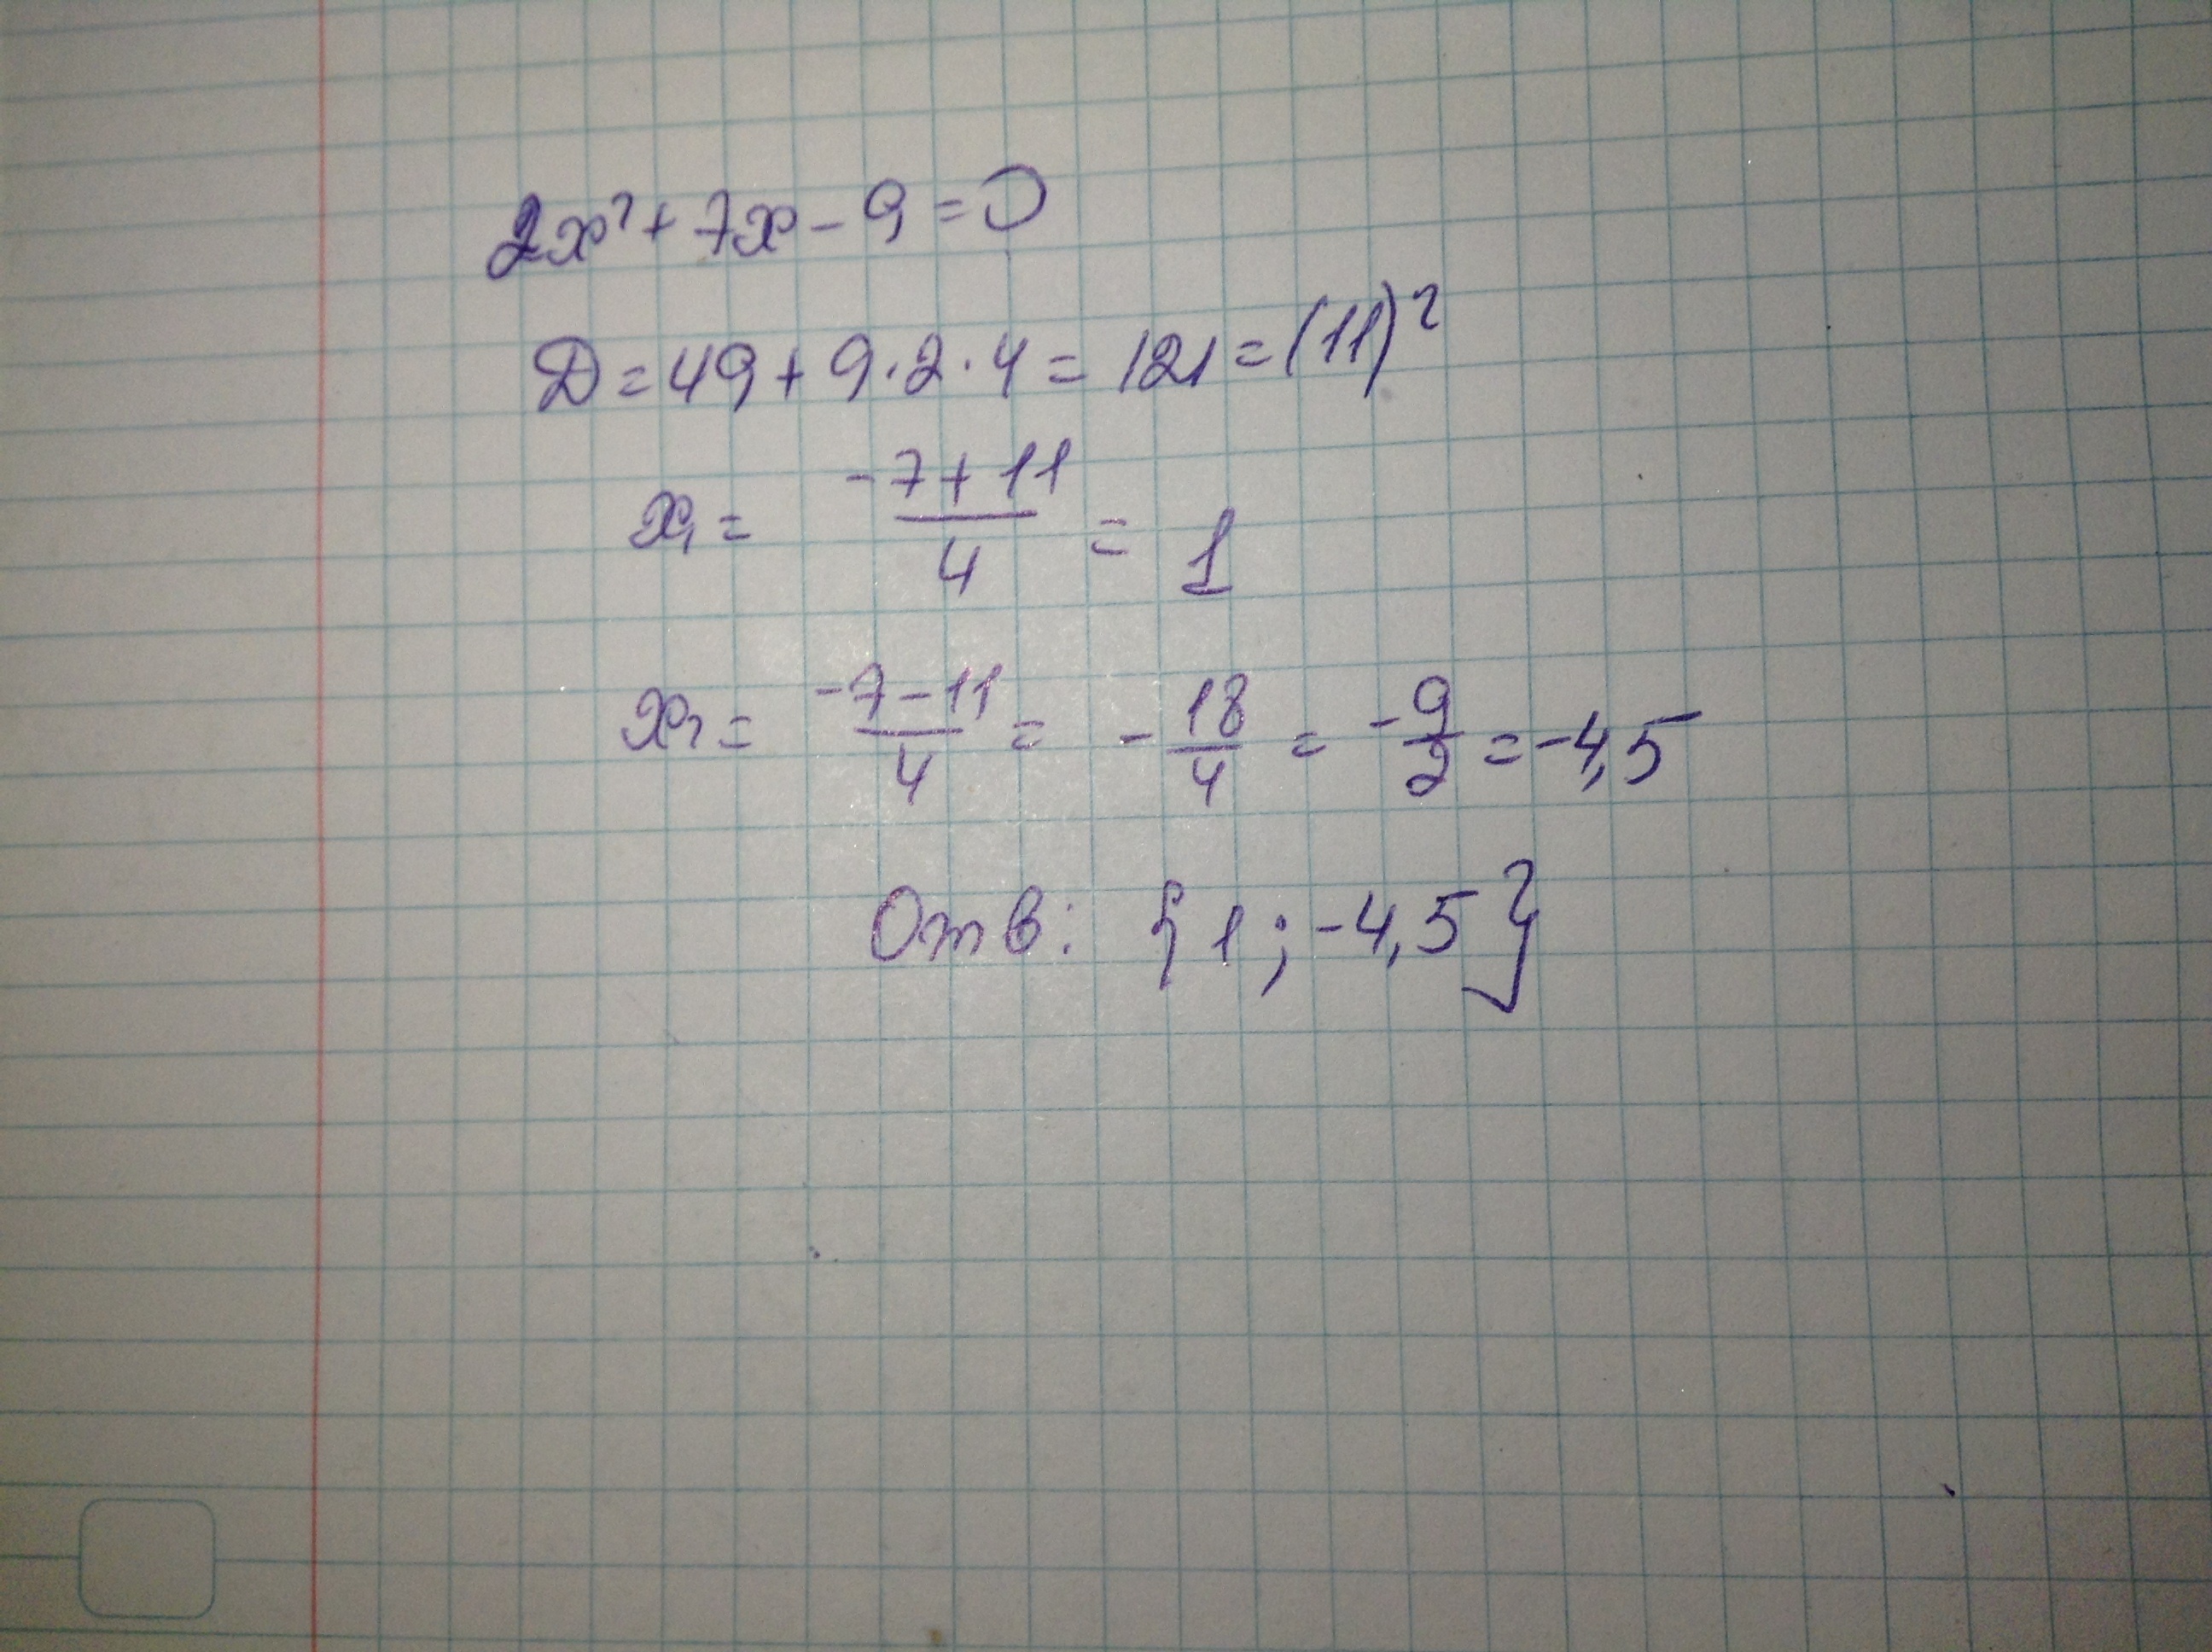 2x² + 7x - 9 = 0
D = 49 + 9·2·4 = 121 = (11)²
x₁ = (-7 + 11)/4 = 1
x₂ = (-7 - 11)/4 = -18/4 = -9/2 = -4,5
Отв: {1; -4,5}